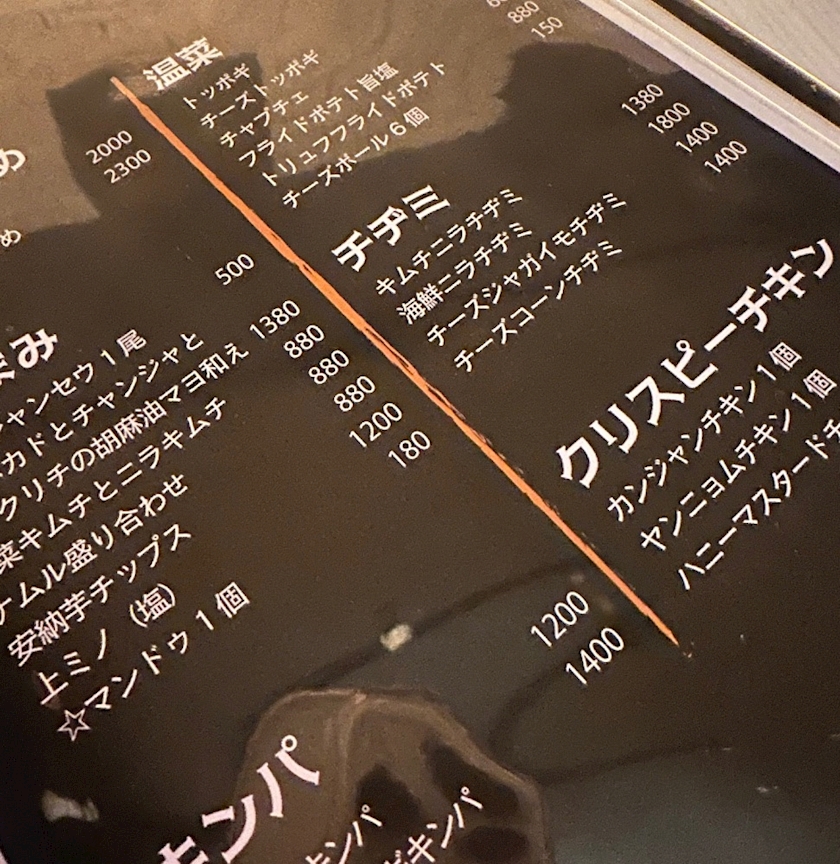 め
2000
2300
め
500
まみ
ャンセウ１尾 500
カドとチャンジャと
クリチの胡麻油マヨ和え 1380
菜キムチとニラキムチ 880
ナムル盛り合わせ 880
安納芋チップス 880
上ミノ（塩） 1200
☆マンドゥ１個 180
1200
1400
キンパ
キンパ
ビキンパ
温菜
トッポギ
チーズトッポギ
チャプチェ
フライドポテト旨塩
トリュフフライドポテト
チーズボール６個
880
150
チヂミ
キムチニラチヂミ 1380
海鮮ニラチヂミ 1800
チーズジャガイモチヂミ 1400
チーズコーンチヂミ 1400
クリスピーチキン
カンジャンチキン１個
ヤンニョムチキン１個
ハニーマスタードチ